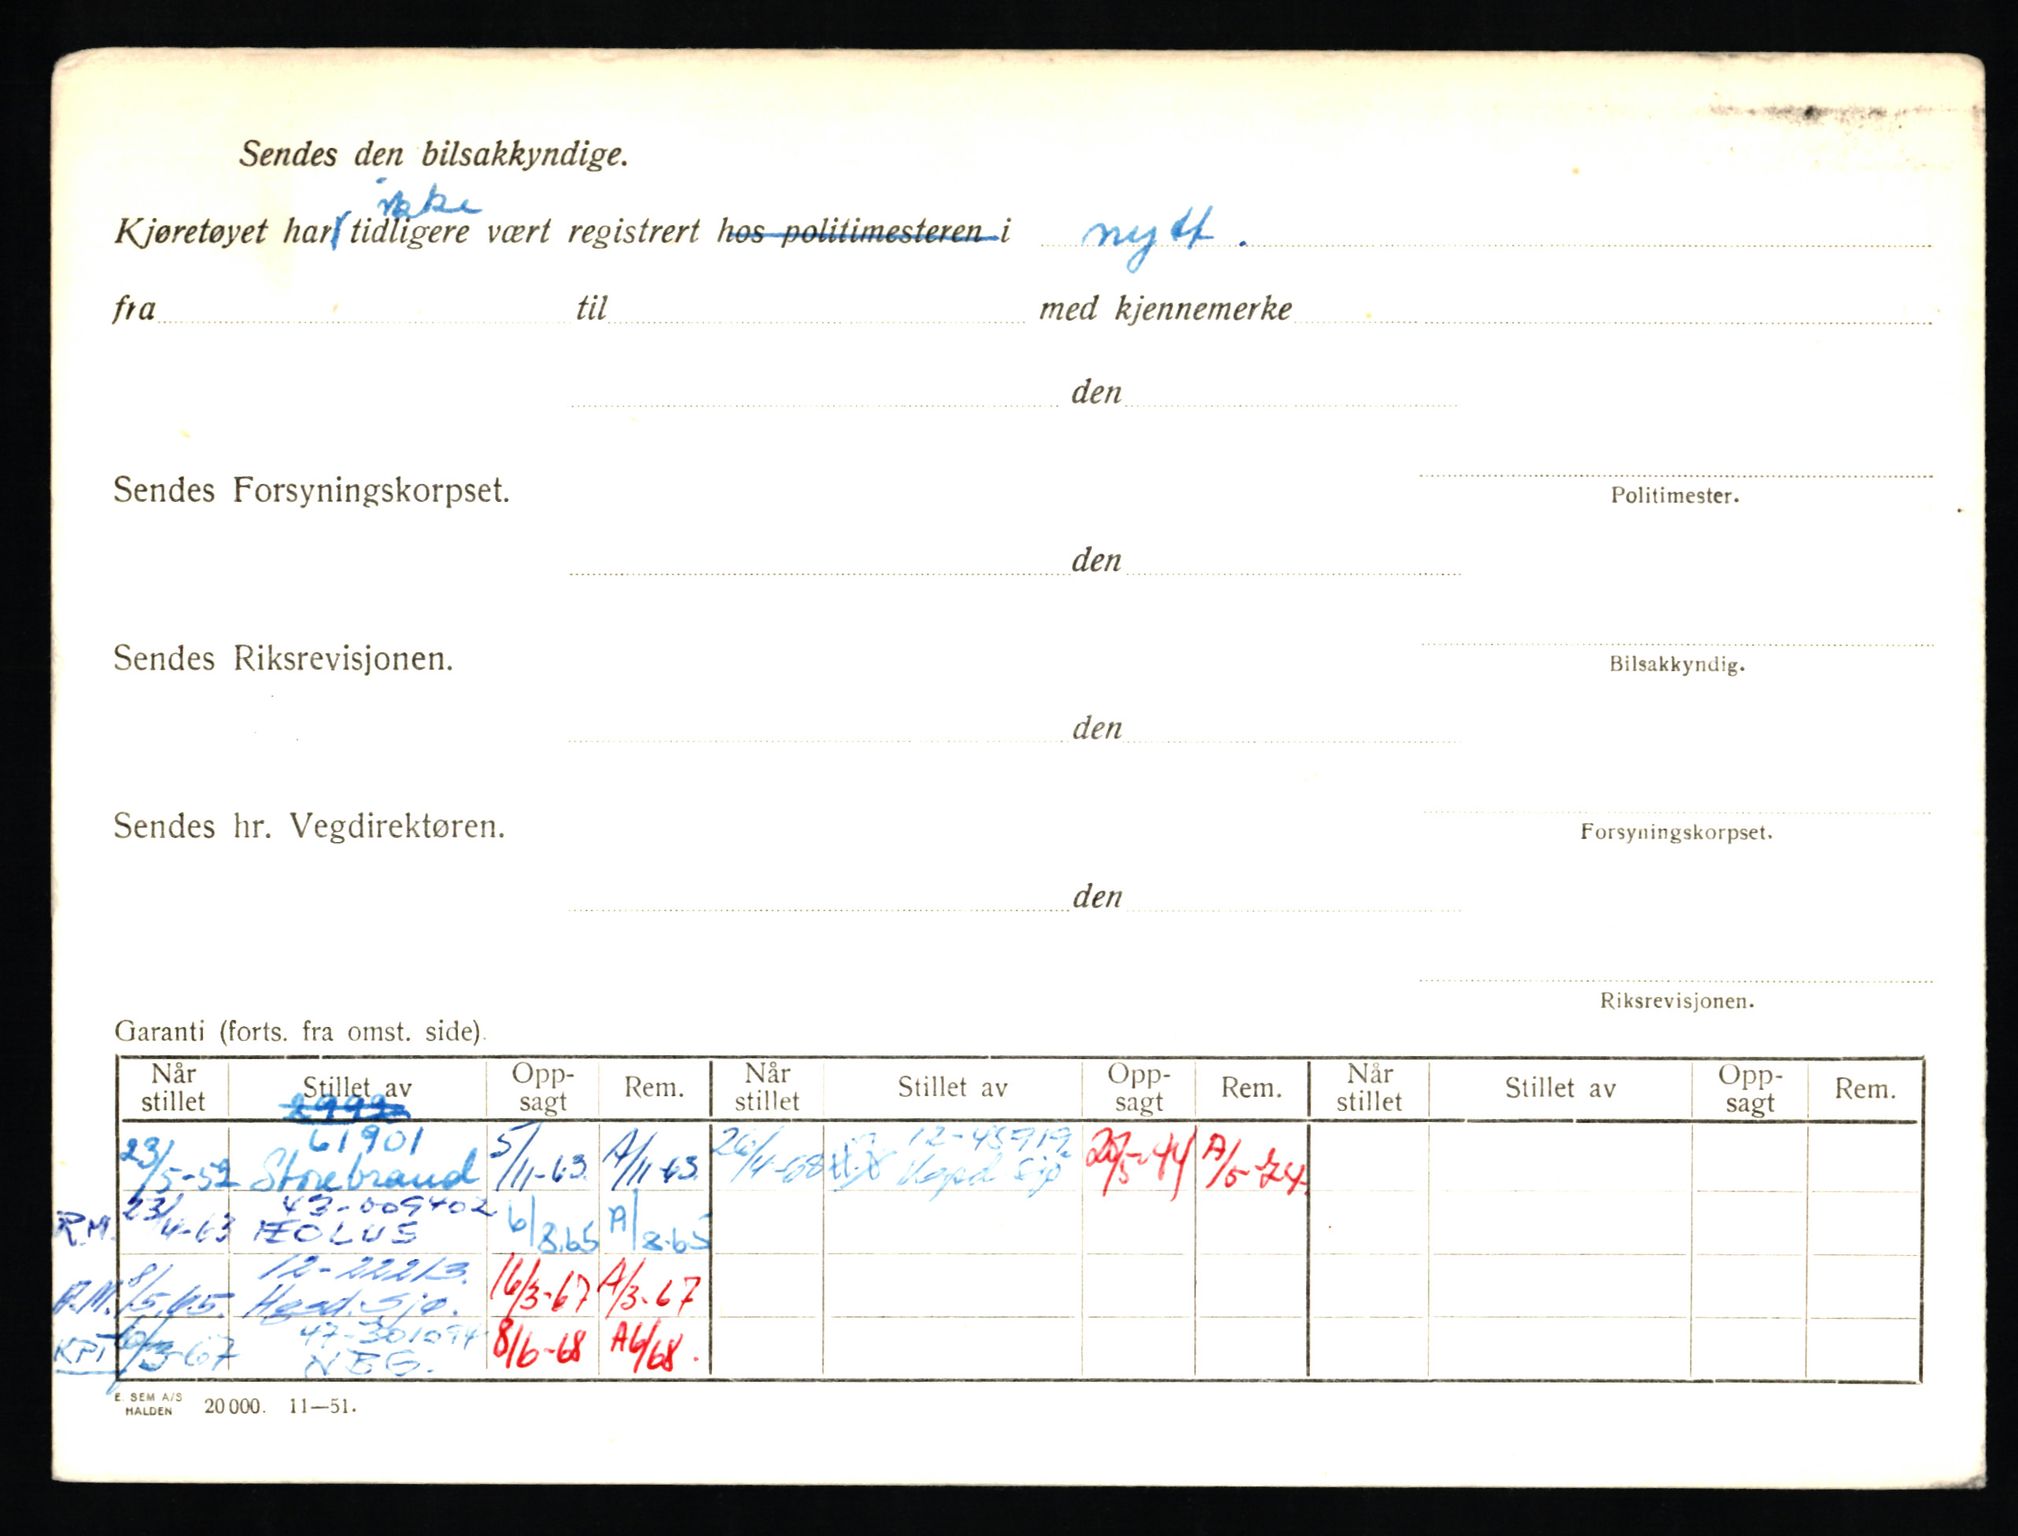 Sendes den bilsakkyndige.
ikke
Kjøretøyet har tidligere vært registrert hos politimesteren i nytt.
fra til med kjennemerke
den
Sendes Forsyningskorpset.
Politimester.
den
Sendes Riksrevisjonen.
Bilsakkyndig.
den
Sendes hr. Vegdirektøren.
Forsyningskorpset.
den
Riksrevisjonen.
Garanti (forts. fra omst. side).
Når stillet Stillet av Opp-sagt Rem. Når stillet Stillet av Opp-sagt Rem. Når stillet Stillet av Opp-sagt Rem.
61901
23/5-52 Storebrand 5/11-63. A/11-63. 26/4-68
A/5-74.
43-009402
R.M. 23/4-63 ÆOLUS 6/8.65 A/8-65
12-22213.
16/3-67 A/3-67
47-301094
KPT 67 NEG. 8/6-68 A6/68.
E. SEM A/S
HALDEN 20 000. 11—51.